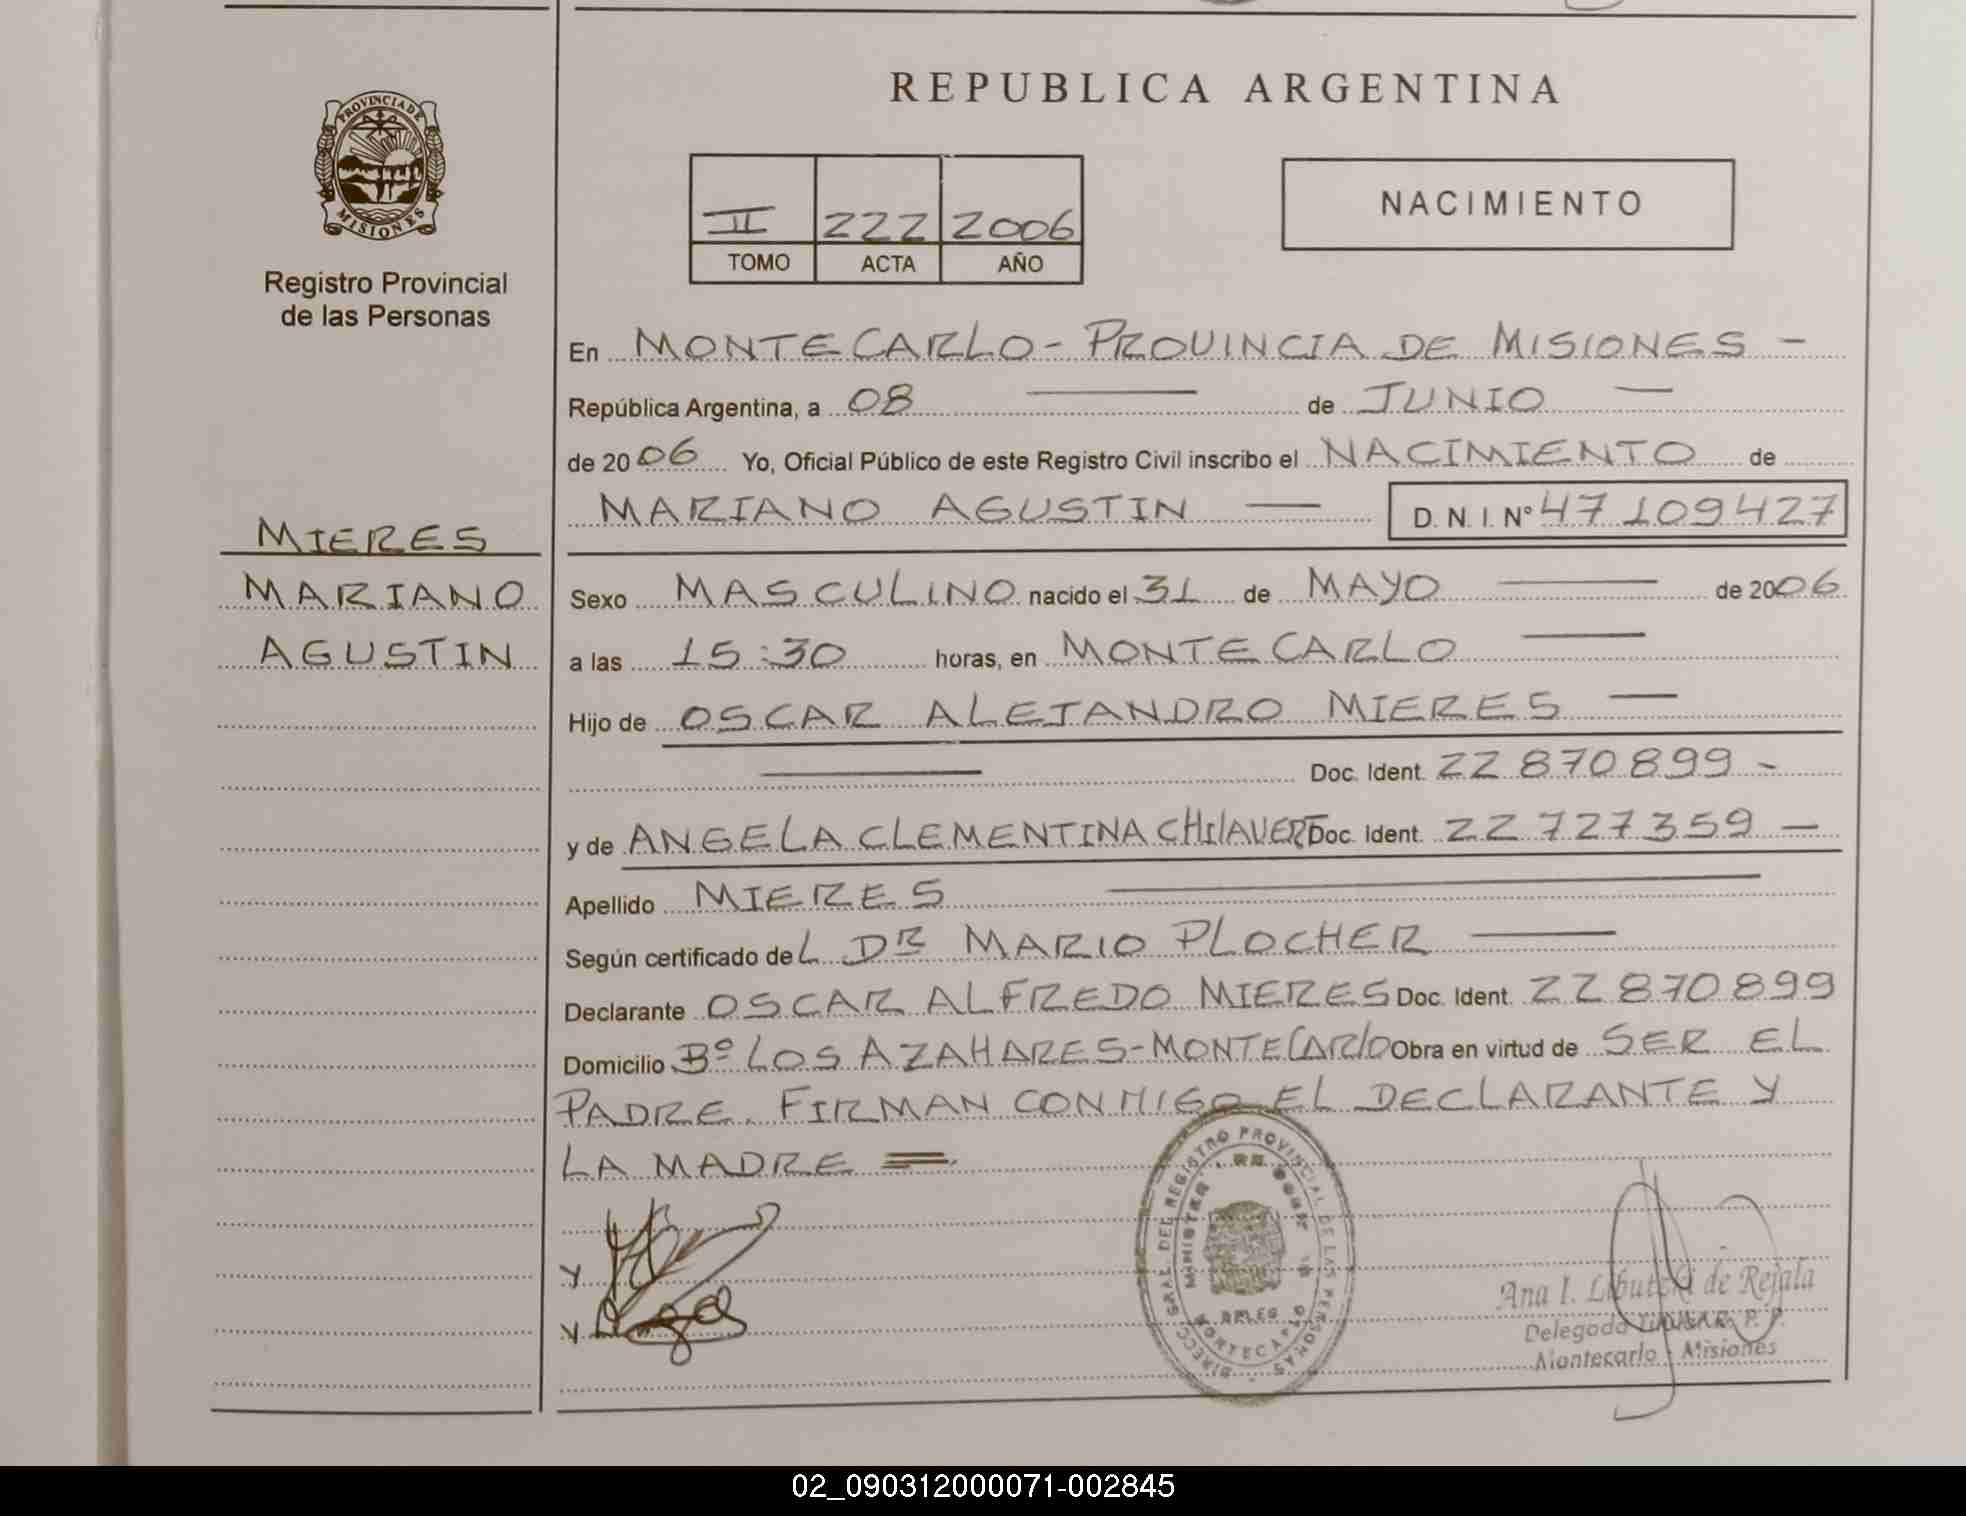 REPUBLICA ARGENTINA
PROVINCIA DE MISIONES
Registro Provincial
de las Personas
II 222 2006
TOMO ACTA AÑO
NACIMIENTO
En MONTECARLO - PROVINCIA DE MISIONES -
República Argentina, a 08 de JUNIO
de 2006 Yo, Oficial Público de este Registro Civil inscribo el NACIMIENTO de
MARIANO AGUSTIN D.N.I. Nº 47 109427
MIERES
MARIANO
AGUSTIN
Sexo MASCULINO nacido el 31 de MAYO de 2006
a las 15:30 horas, en MONTECARLO
Hijo de OSCAR ALEJANDRO MIERES
Doc. Ident. 22 870899 -
y de ANGELA CLEMENTINA CHILAVERT Doc. Ident. 22 727359 -
Apellido MIERES
Según certificado del DR MARIO PLOCHER
Declarante OSCAR ALFREDO MIERES Doc. Ident. 22 870899
Domicilio Bº LOS AZAHARES - MONTECARLO Obra en virtud de SER EL
PADRE. FIRMAN CONMIGO EL DECLARANTE Y
LA MADRE
DIRECC. GRAL. DEL REGISTRO PROVINCIAL DE LAS PERSONAS
Ana I. de Rejala
Delegada P. P.
Montecarlo - Misiones
02_090312000071-002845